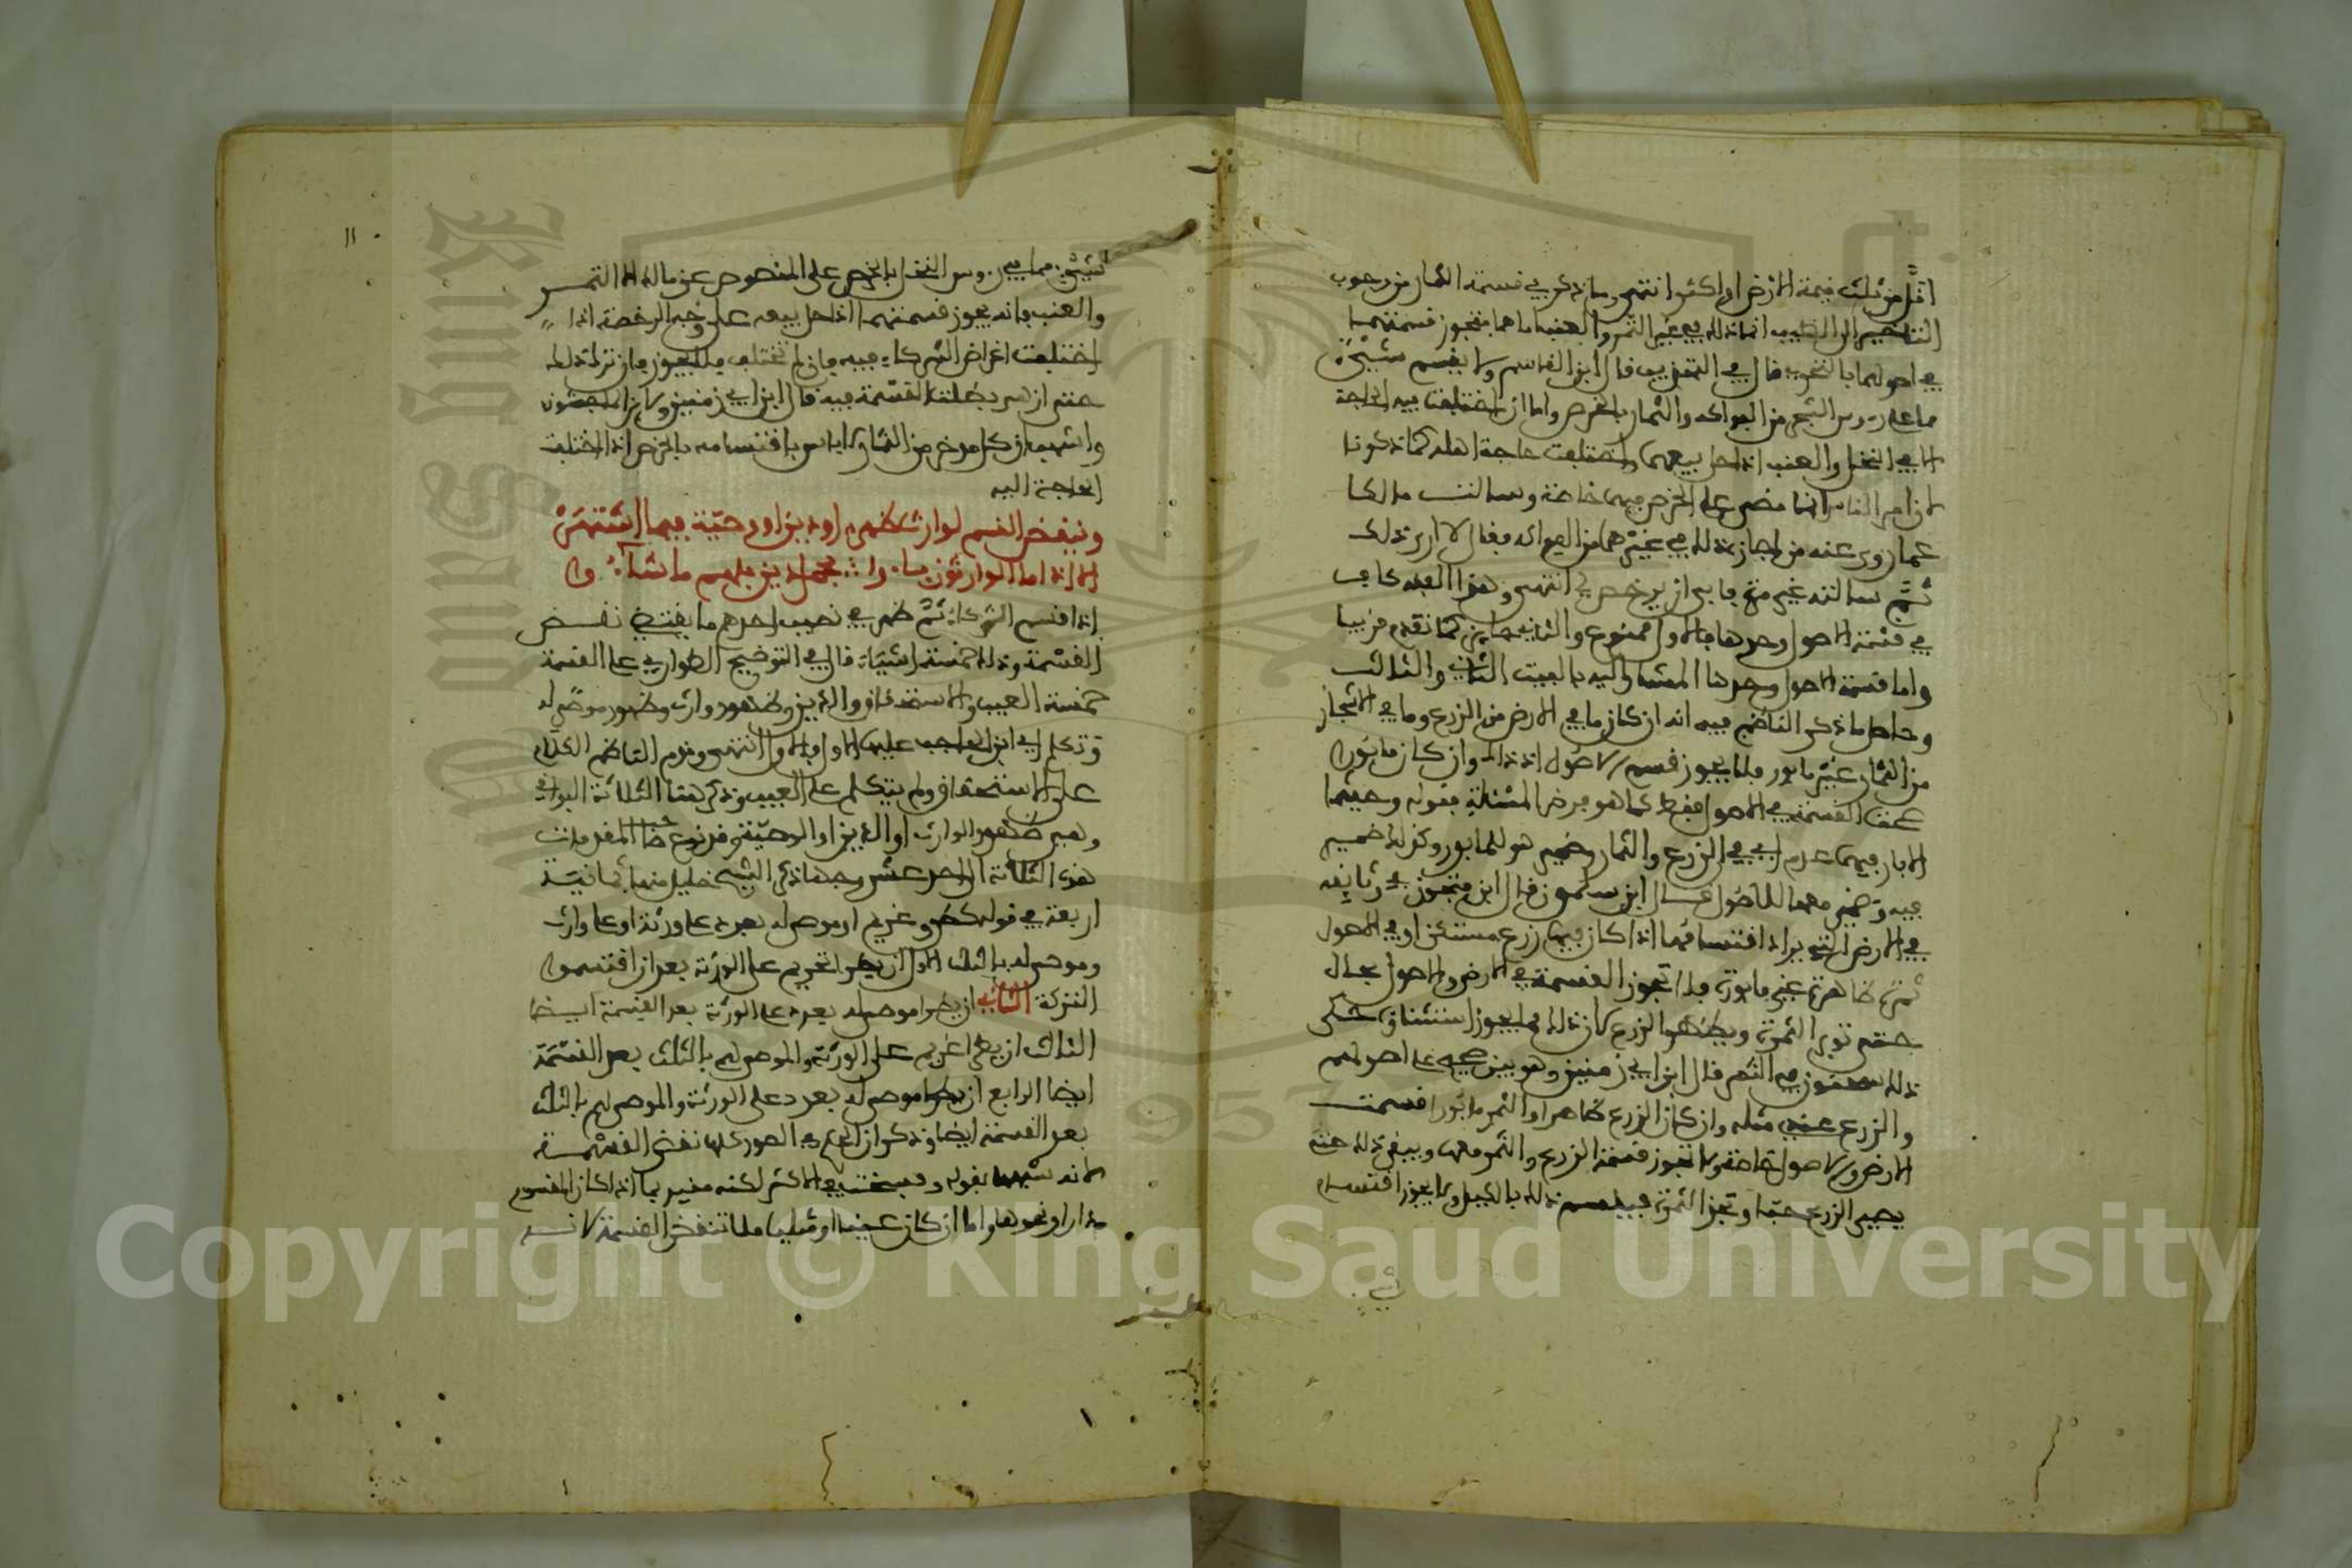 اقل من ثلث قيمة الارض او اكثر انتهى وما ذكر في قسمة الثمار من وجوب
التاخير الى الطيب انما ذلك في غير الثمر والعنب اما هما فتجوز قسمتهما
في اصولهما بالتحري قال في التهذيب قال ابن القاسم ولا يقسم شيء
مما على رءوس الشجر من الفواكه والثمار بالخرص واما ان اختلفت فيه الحاجة
الا في النخل والعنب اذا حل بيعهما واختلفت حاجة اهله كما ذكرنا
لان امر الناس انما مضى على الخرص فيهما خاصة وسالت مالكا
عما روى عنه من اجاز ذلك في غيرهما من الفواكه فقال لا ارى ذلك
ثم سالته غير مرة فابى ان يرخص لي انتهى وهذا الفقه كاف
في قسمة الاصول وحدها فالاول ممنوع والثاني جايز كما تقدم قريبا
واما قسمة الاصول وحدها المشار اليه بالبيت الثاني والثالث
وحاصل ما ذكر الناظم فيه انه ان كان ما في الارض من الزرع وما في الاشجار
من الثمار غير مابور فلا يجوز قسم الاصول اذ ذاك وان كان مابورا
صحت القسمة في الاصول فقط كما هو فرض المسئلة فقوله وحيثما
الابار فيهما عدم اي في الزرع والثمار وضمير هو للمابور وكذلك ضمير
فيه وضمير معها للاصول قال ابن سلمون قال ابن فتحون في وثايقه
في الارض التي يراد اقتسامها اذا كان فيها زرع مستكن او في الاصول
ثمرة ظاهرة غير مابورة فلا تجوز القسمة في الارض والاصول بحال
حتى توبر الثمرة ويظهر الزرع لان ذلك مما لا يجوز استثناؤه حكى
ذلك سحنون في الثمر قال ابن ابي زمنين وهو بين صحيح على اصولهم
والزرع عندي مثله وان كان الزرع ظاهرا والثمر مابورا قسمت
الارض والاصول خاصة ولا تجوز قسمة الزرع والثمر معها ويبقى ذلك حتى
يصير الزرع حبا وتجز الثمرة فيقسم ذلك بالكيل ولا يجوز اقتسام
شيء
١١
شيء مما في رءوس النخل بالخرص على المنصوص عن مالك الا التمر
والعنب فانه يجوز قسمتهما اذا حل بيعه على وجه الرخصة اذا
اختلفت اغراض الشركاء فيه فان لم تختلف فلا يجوز فان ترك ذلك
حتى ازهر بطلت القسمة فيه قال ابن ابي زمنين ولابن الماجشون
واشهب ان كل مدخر من الثمار لا باس باقتسامه بالخرص اذا اختلفت
الحاجة اليه
وينقض القسم لوارث ظهر او دين او وصية فيما اشتهر
الا اذا ما الوارثون باءوا بحمل دين فلهم ما شاءوا
اذا اقتسم الشركاء ثم ظهر في نصيب احدهم ما يقتضي نقض
القسمة وذلك خمسة اشياء قال في التوضيح الطوارئ على القسمة
خمسة العيب والاستحقاق والدين وظهور وارث وظهور موصى له
وتكلم اي ابن الحاجب عليها الاول فالاول انتهى وقدم الناظم الكلام
على الاستحقاق ولم يتكلم على العيب وذكر هنا الثلاثة البواقي
وهي ظهور الوارث او الدين او الوصية وقد نوع صاحب المقدمات
هذه الثلاثة الى احد عشر وجها ذكر الشيخ خليل منها ثمانية
اربعة في قوله كطرو غريم او موصى له بعدد على ورثة او على وارث
وموصى له بالثلث الاول ان يطرا الغريم على الورثة بعد ان اقتسموا
التركة الثاني ان يطرا موصى له بعدد على الورثة بعد القسمة ايضا
الثالث ان يطرا غريم على الورثة والموصى لهم بالثلث بعد القسمة
ايضا الرابع ان يطرا موصى له بعدد على الورثة والموصى لهم بالثلث
بعد القسمة ايضا وذكر ان الحكم في الصور كلها نقض القسمة
لانه شبهها بقوله وفسخت في الاكثر لكنه مقيد بما اذا كان المقسوم
دارا ونحوها واما ان كان عينا او مثليا فلا تنقض القسمة لانه
Copyright © King Saud University
King Saud